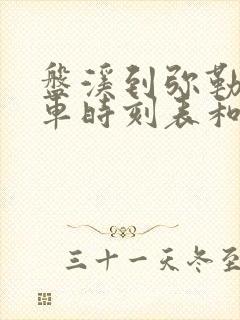 盤溪到弥勒
車時刻表和
三十一天冬至